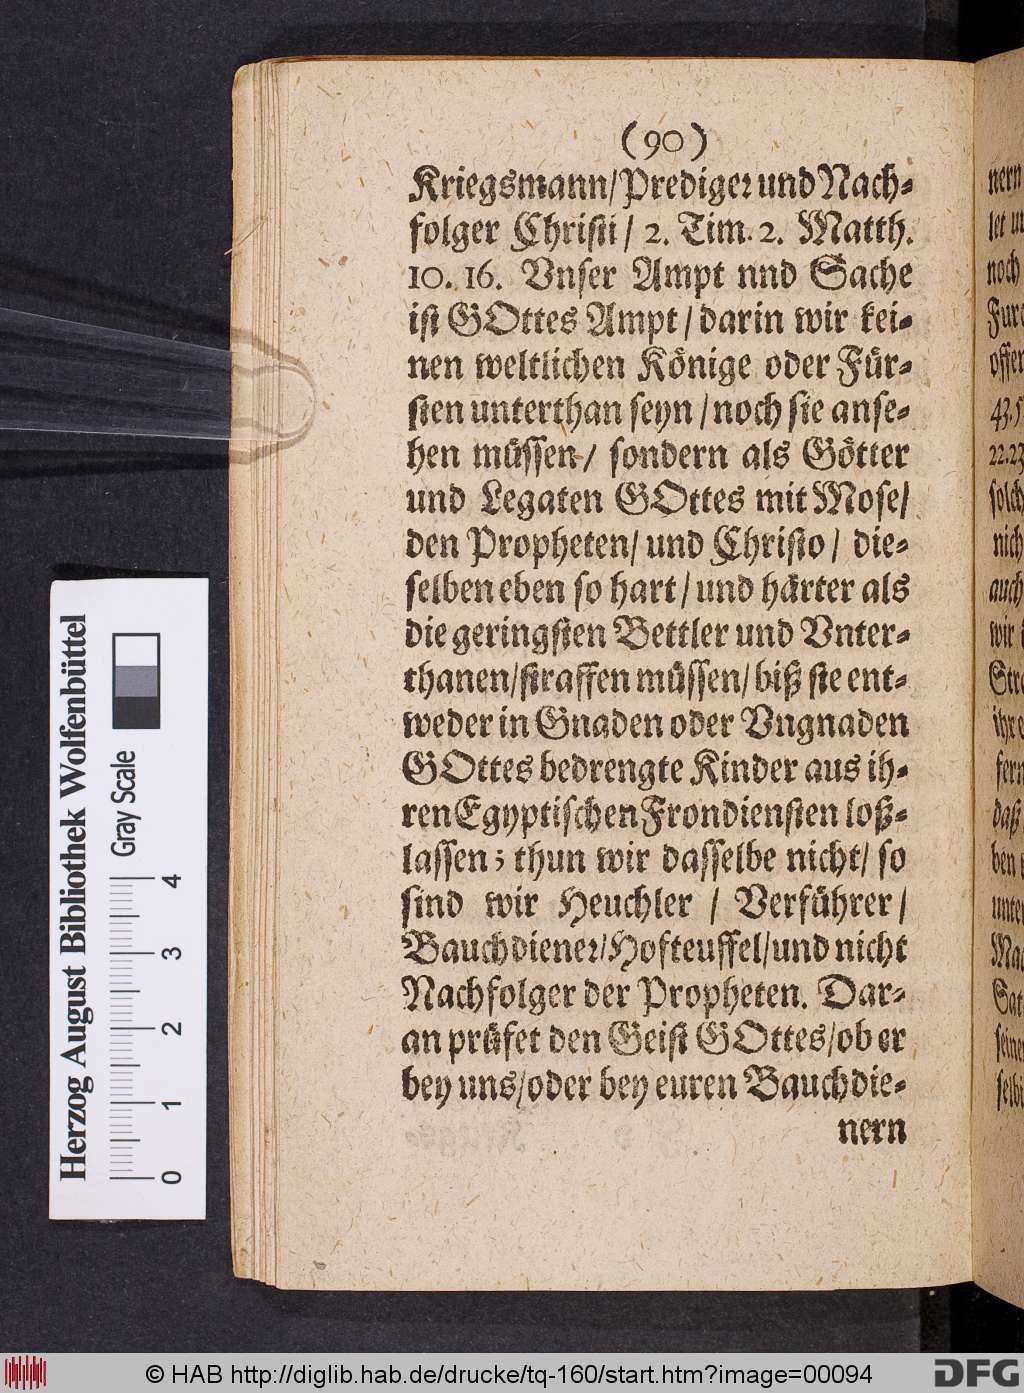 (90)
Kriegsmann/Prediger und Nach-
folger Christi / 2. Tim. 2. Matth.
10. 16. Vnser Ampt nnd Sache
ist GOttes Ampt / darin wir kei-
nen weltlichen Könige oder Für-
sten unterthan seyn / noch sie anse-
hen müssen / sondern als Götter
und Legaten GOttes mit Mose/
den Propheten/ und Christo / die-
selben eben so hart / und härter als
die geringsten Bettler und Vnter-
thanen/straffen müssen/ biß sie ent-
weder in Gnaden oder Vngnaden
GOttes bedrengte Kinder aus ih-
ren Egyptischen Frondiensten loß-
lassen; thun wir dasselbe nicht/ so
sind wir Heuchler / Verführer /
Bauchdiener/Hofteuffel/und nicht
Nachfolger der Propheten. Dar-
an prüfet den Geist GOttes/ob er
bey uns/oder bey euren Bauchdie-
nern
nern
let
noch
offen
43.5
22.23
solch
nich
auch
wir
Stra
ihr
fern
daß
ben
unter
Mac
Sat
seine
selbi
Herzog August Bibliothek Wolfenbüttel
Gray Scale
0 1 2 3 4
© HAB http://diglib.hab.de/drucke/tq-160/start.htm?image=00094
DFG